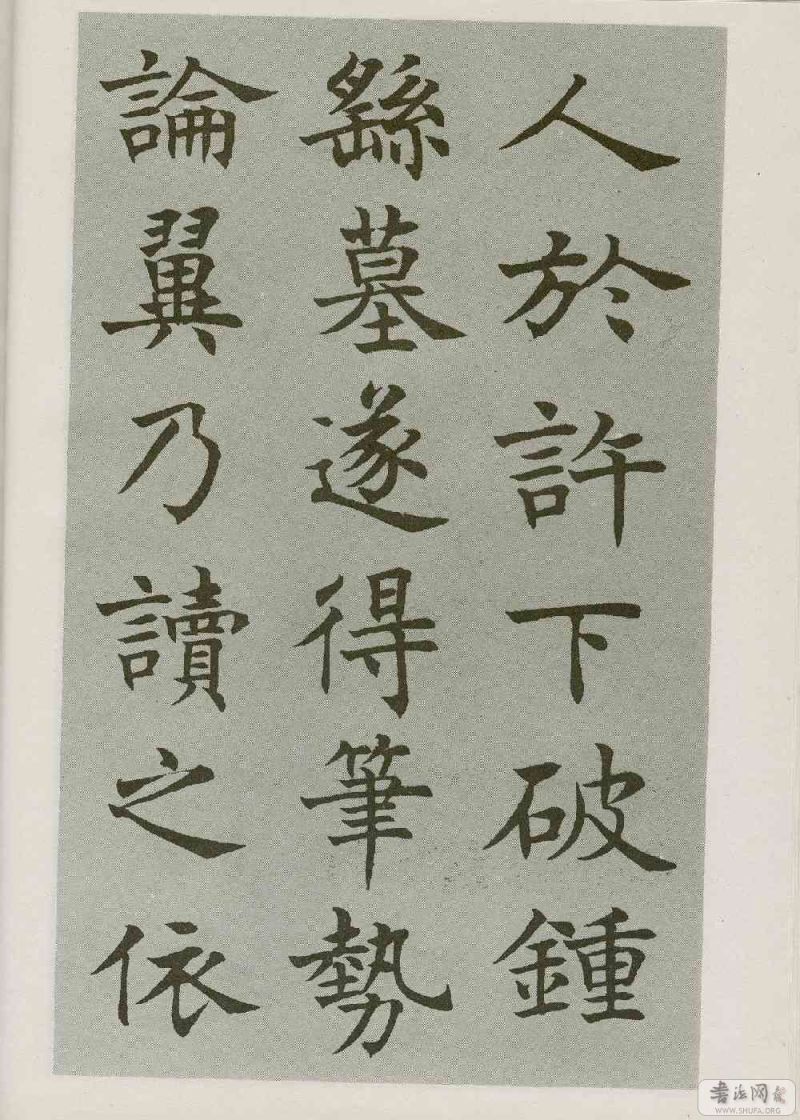 人於許下破鍾
繇墓遂得筆勢
論翼乃讀之依
書法网
WWW.SHUFA.ORG